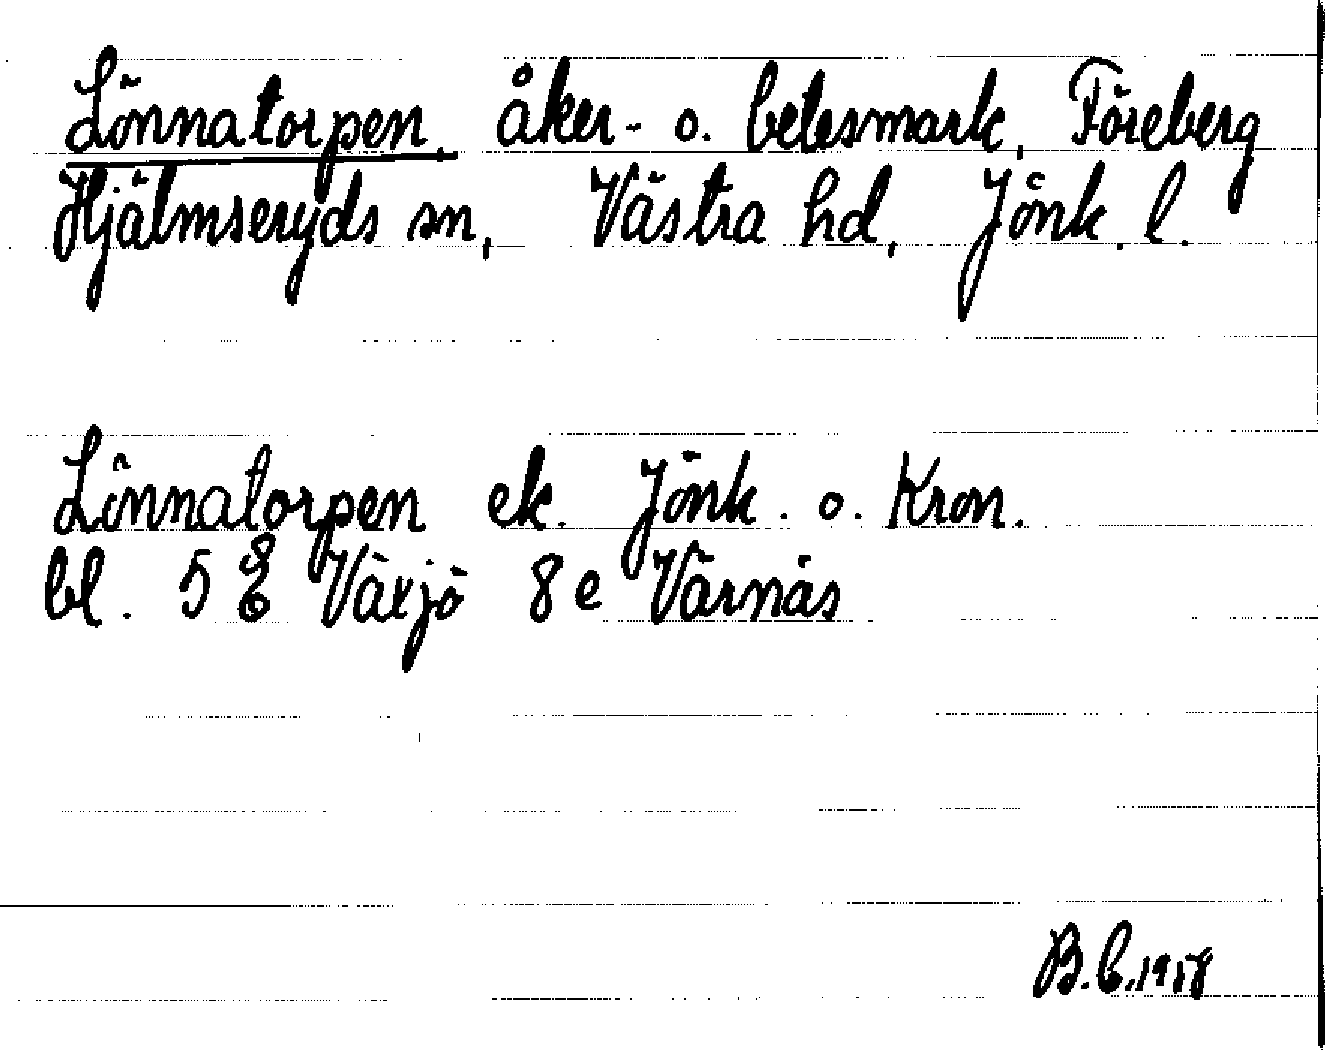 Lönnatorpen, åker- o. betesmark, Föreberg
Hjälmseryds sn, Västra hd, Jönk. l.
Lönnatorpen ek. Jönk. o. Kron.
bl. 5 E Växjö 8e Värnäs
B.C. 1958